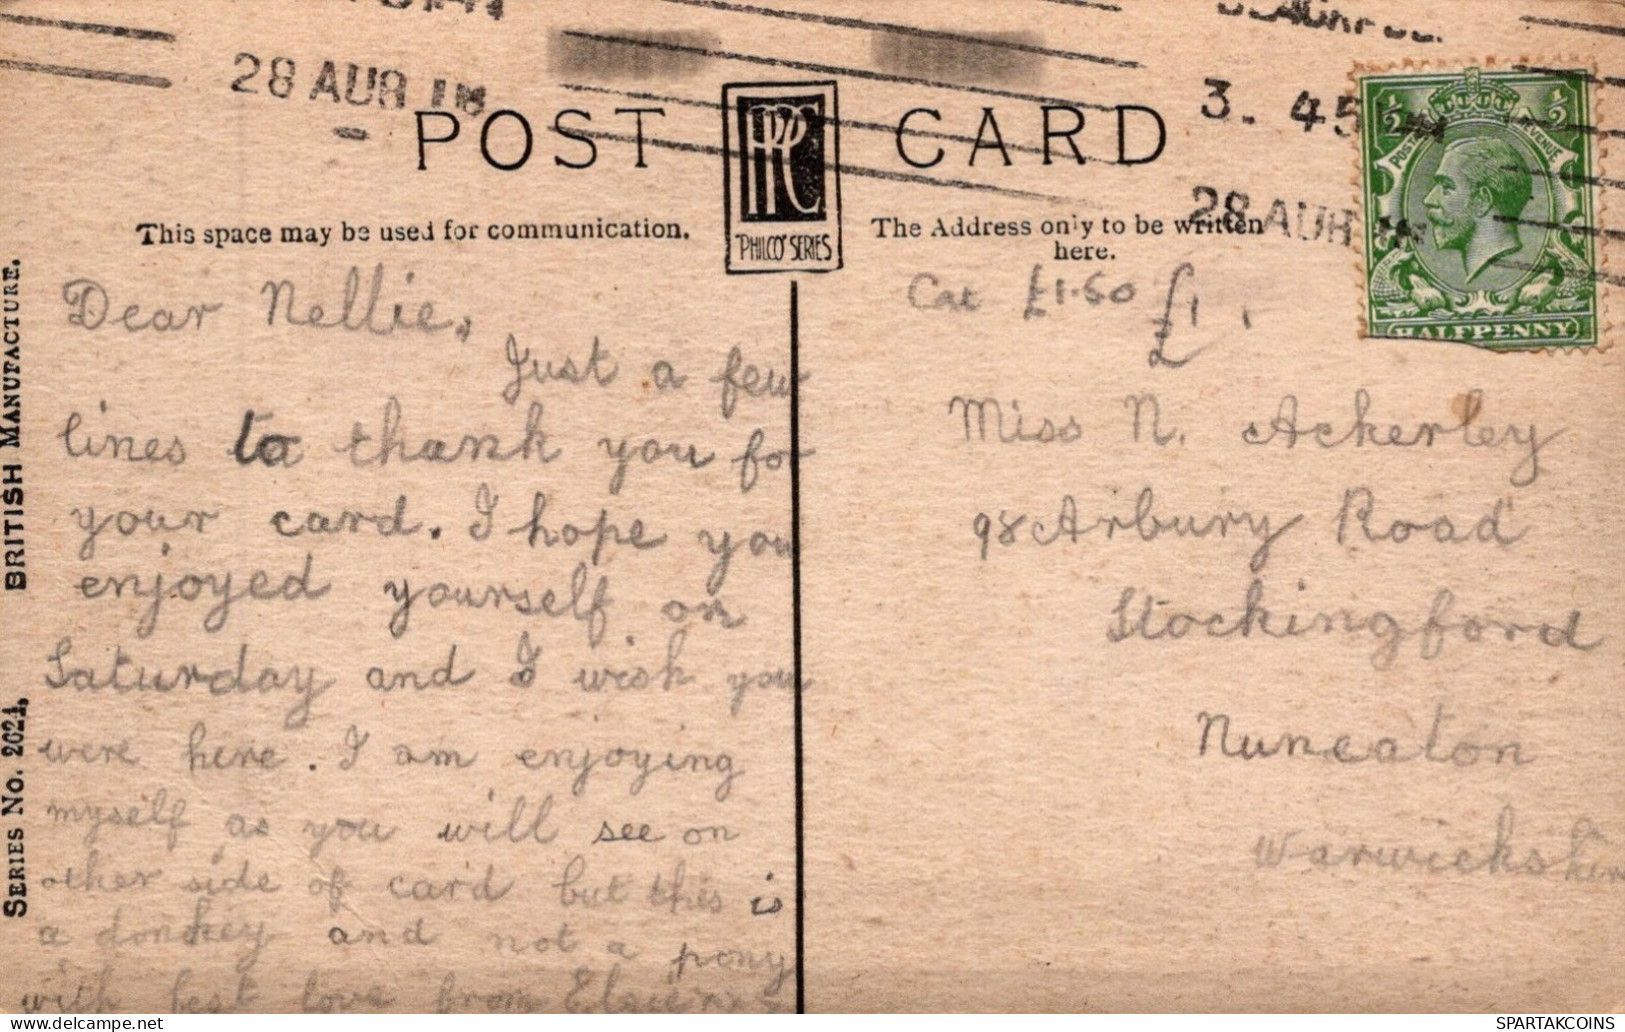 28 AUG
3. 45
28 AUG
POST CARD
PPC
"PHILCO" SERIES
This space may be used for communication.
The Address only to be written
here.
½ ½
POSTAGE REVENUE
HALFPENNY
SERIES No. 2024. BRITISH MANUFACTURE.
Dear Nellie,
Just a few
lines to thank you for
your card. I hope you
enjoyed yourself on
Saturday and I wish you
were here. I am enjoying
myself as you will see on
other side of card but this is
a donkey and not a pony
with best love from Elsie
Cat £1.50 £1
Miss N. Ackerley
98 Arbury Road
Stockingford
Nuneaton
Warwickshire
SPARTAKCOINS